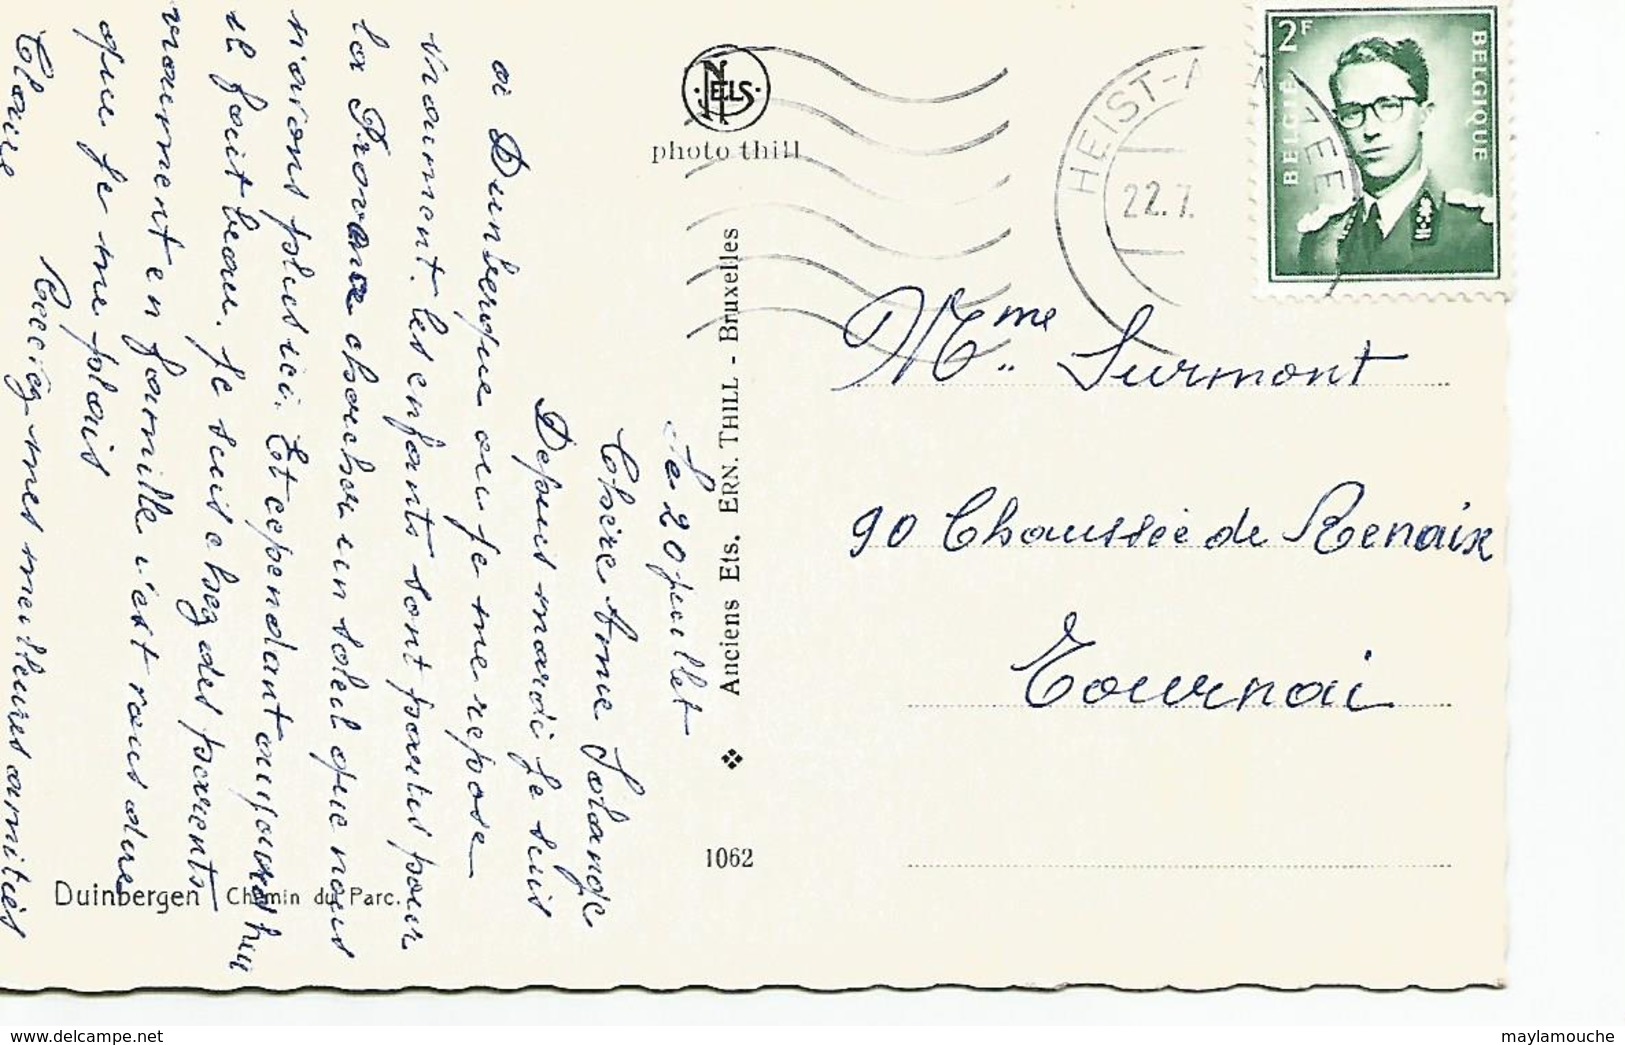 Le 20 juillet
Chère Mme Solange
Depuis mardi je suis
à Duinbergue ou je me repose
vraiment. Les enfants sont partis pour
la Provence chercher un soleil que nous
n'avons plus ici. Et cependant aujourd'hui
il fait beau. Je suis chez des parents
vraiment en famille c'est vous dire
que je me plais
Recevez mes meilleures amitiés
Claire
NELS
photo thill
Anciens Ets. ERN. THILL - Bruxelles
1062
Duinbergen Chemin du Parc.
HEIST-A ZEE
22.7.
2F
BELGIË
BELGIQUE
Mme Surmont
90 Chaussée de Renaix
Tournai
https://www.delcampe.net
maylamouche